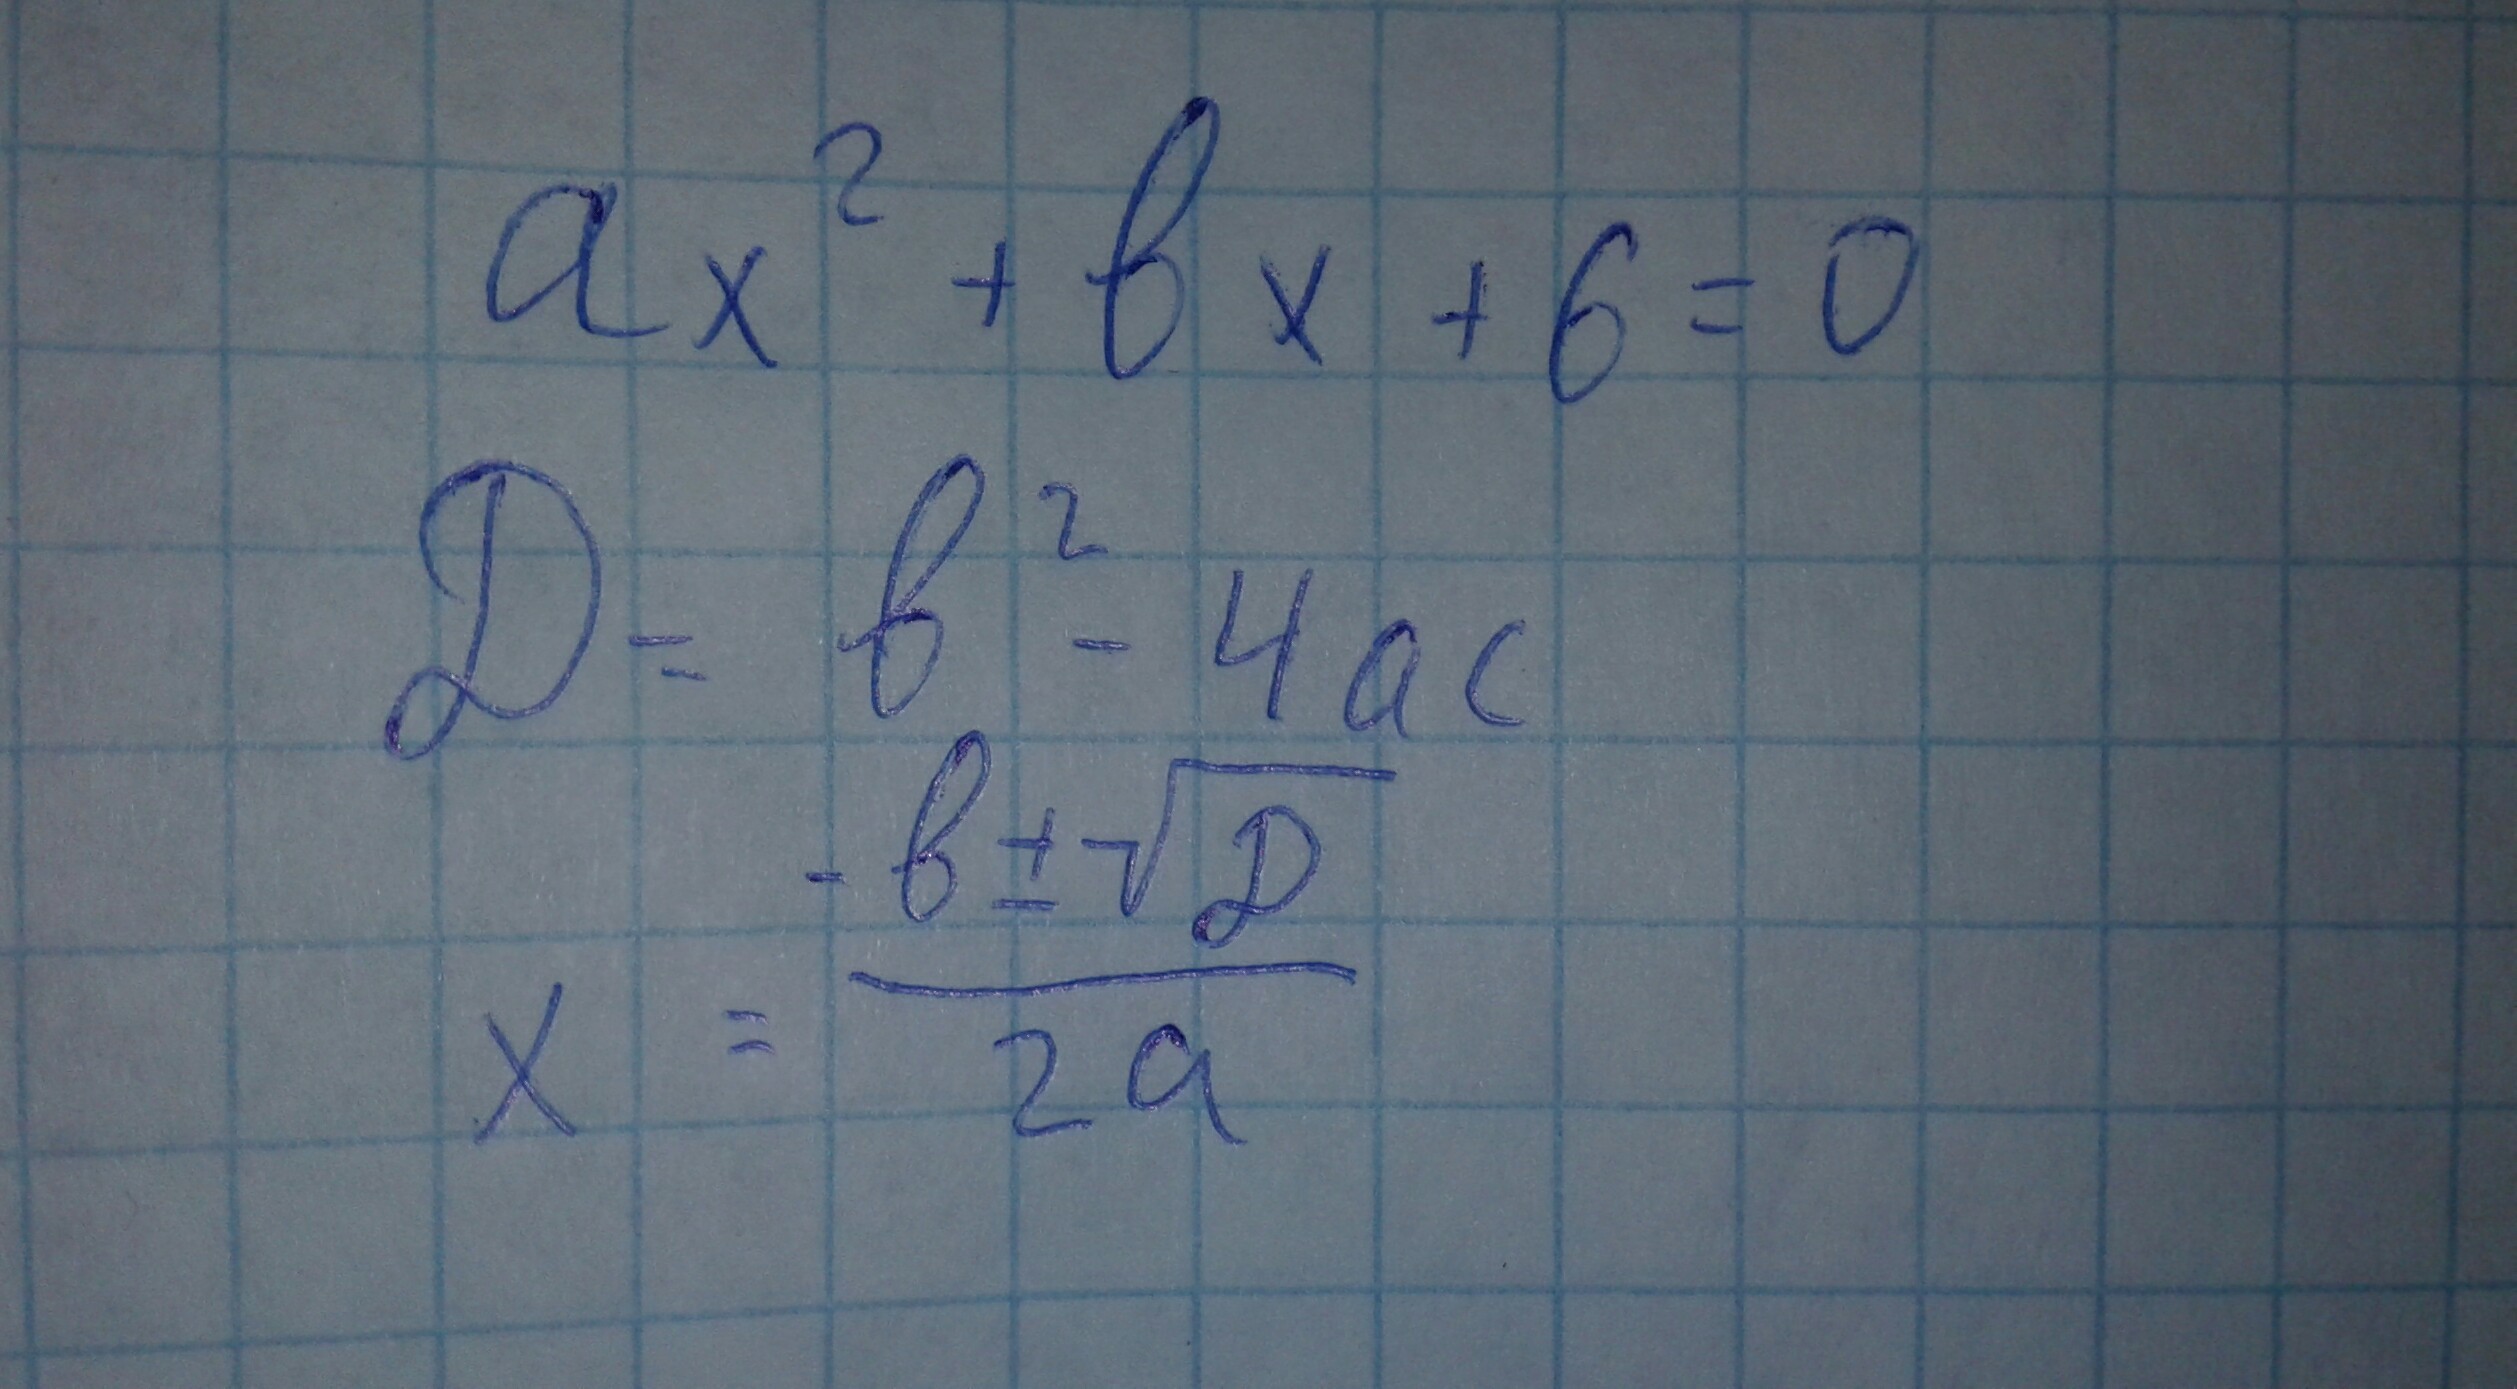 ax² + bx + 6 = 0
D = b² - 4ac
x = (-b ± √D) / 2a